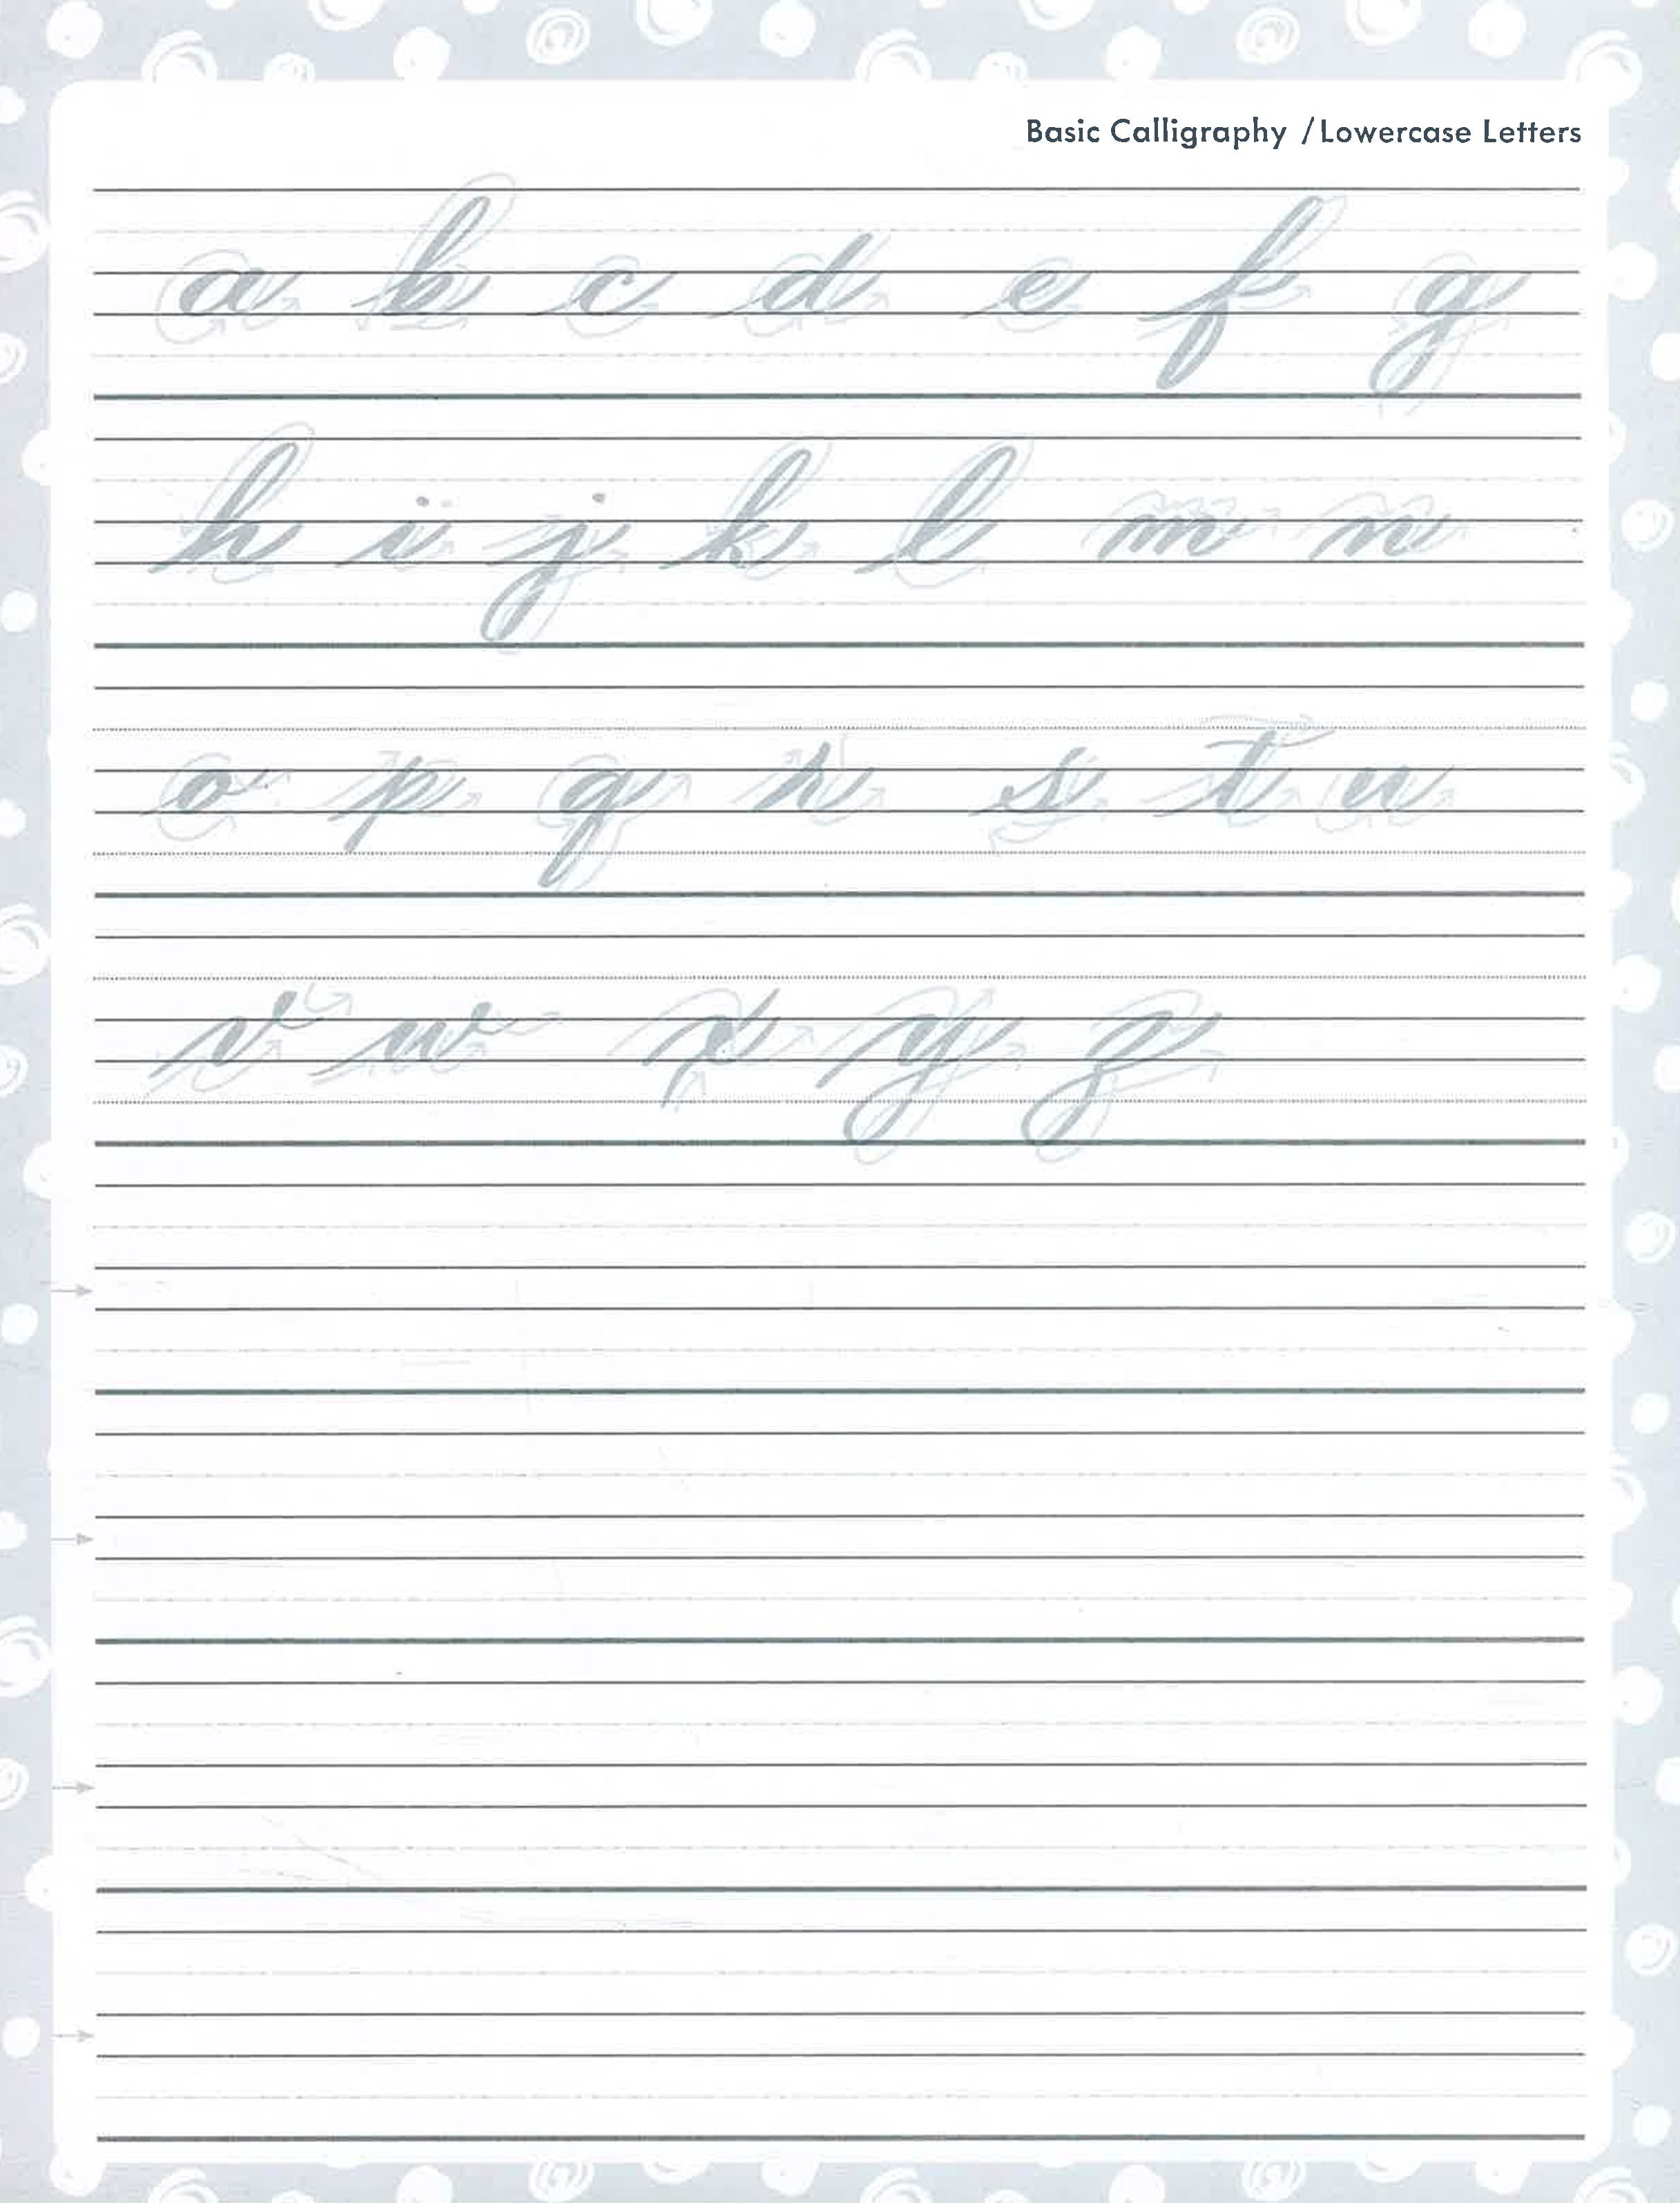 Basic Calligraphy / Lowercase Letters
a b c d e f g
h i j k l m n
o p q r s t u
v w x y z